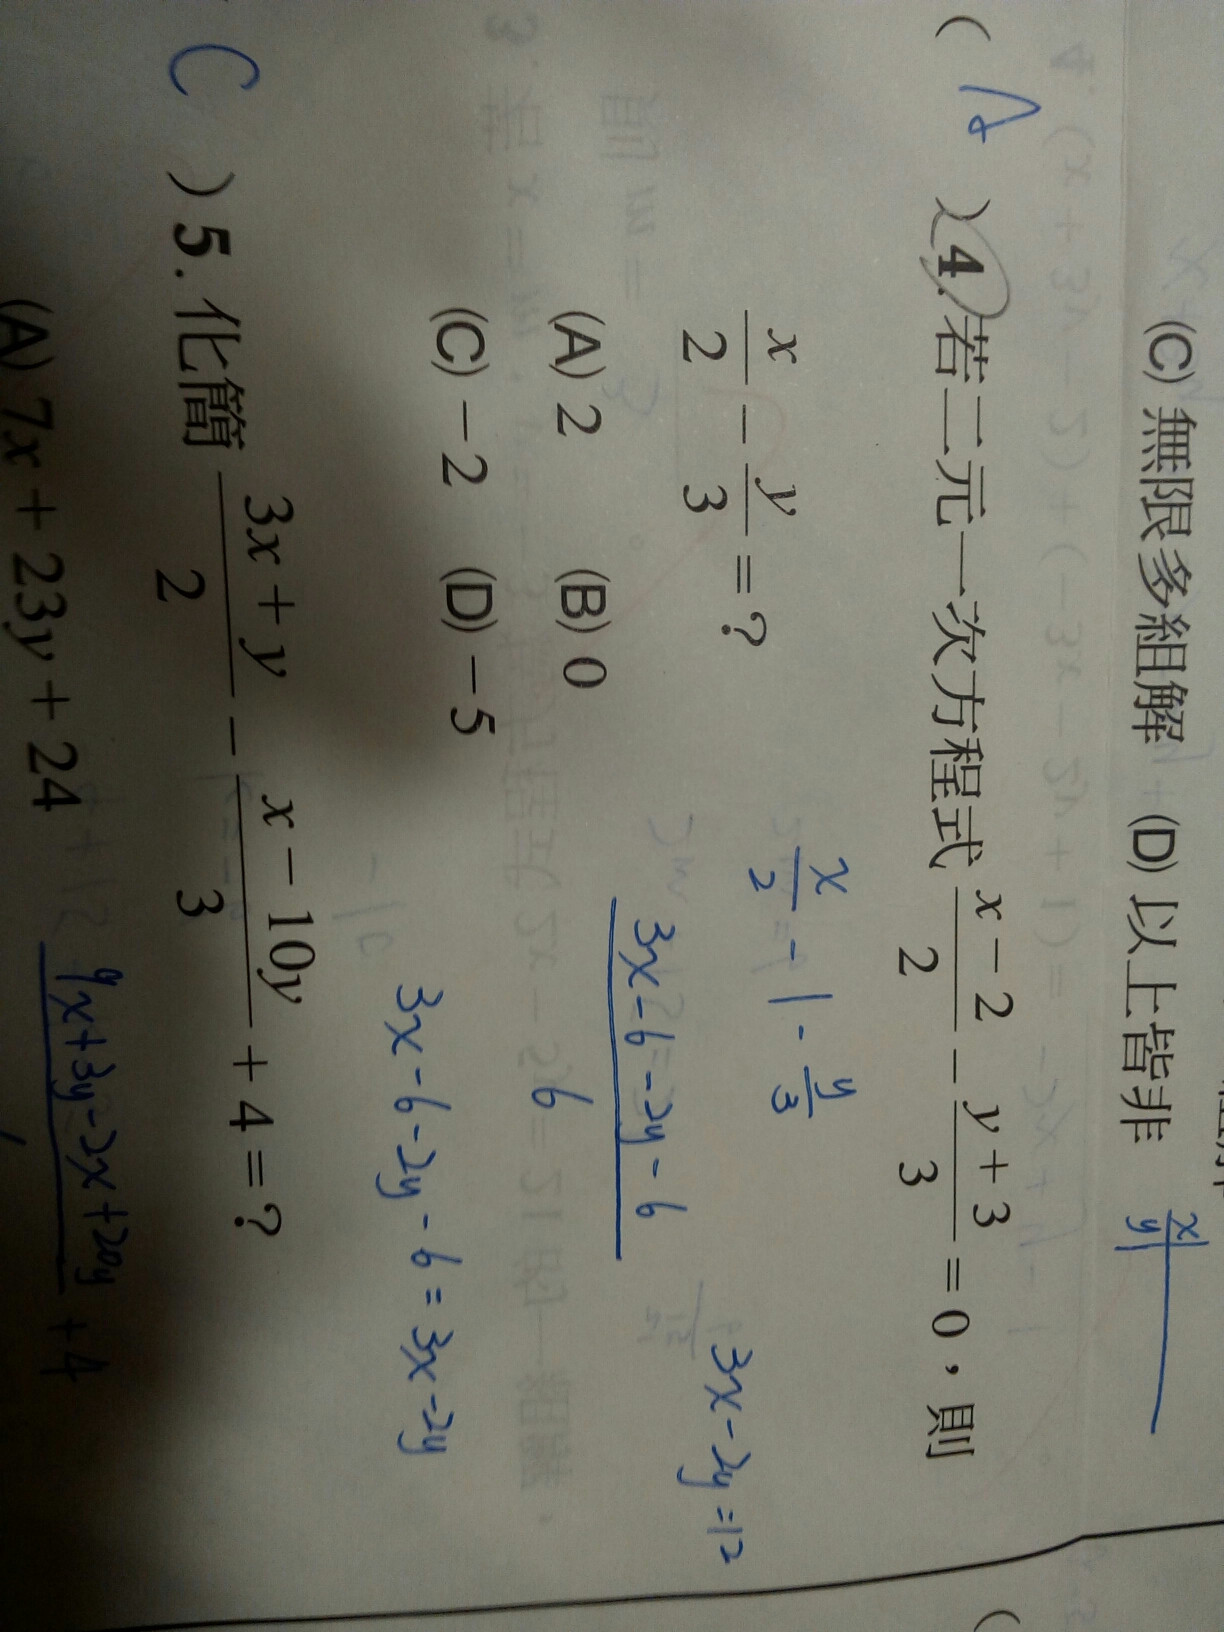 (C) 無限多組解 (D) 以上皆非
x
y
( A ) 4. 若二元一次方程式 \frac{x-2}{2} - \frac{y+3}{3} = 0,則
\frac{x}{2} - \frac{y}{3} = ?
\frac{x}{2} - 1 - \frac{y}{3}
3x-2y=12
(A) 2 (B) 0
3x-6-2y-6
6
(C) -2 (D) -5
3x-6-2y-6=3x-2y
C ) 5. 化簡 \frac{3x+y}{2} - \frac{x-10y}{3} + 4 = ?
(A) 7x + 23y + 24
9x+3y-2x+20y +4